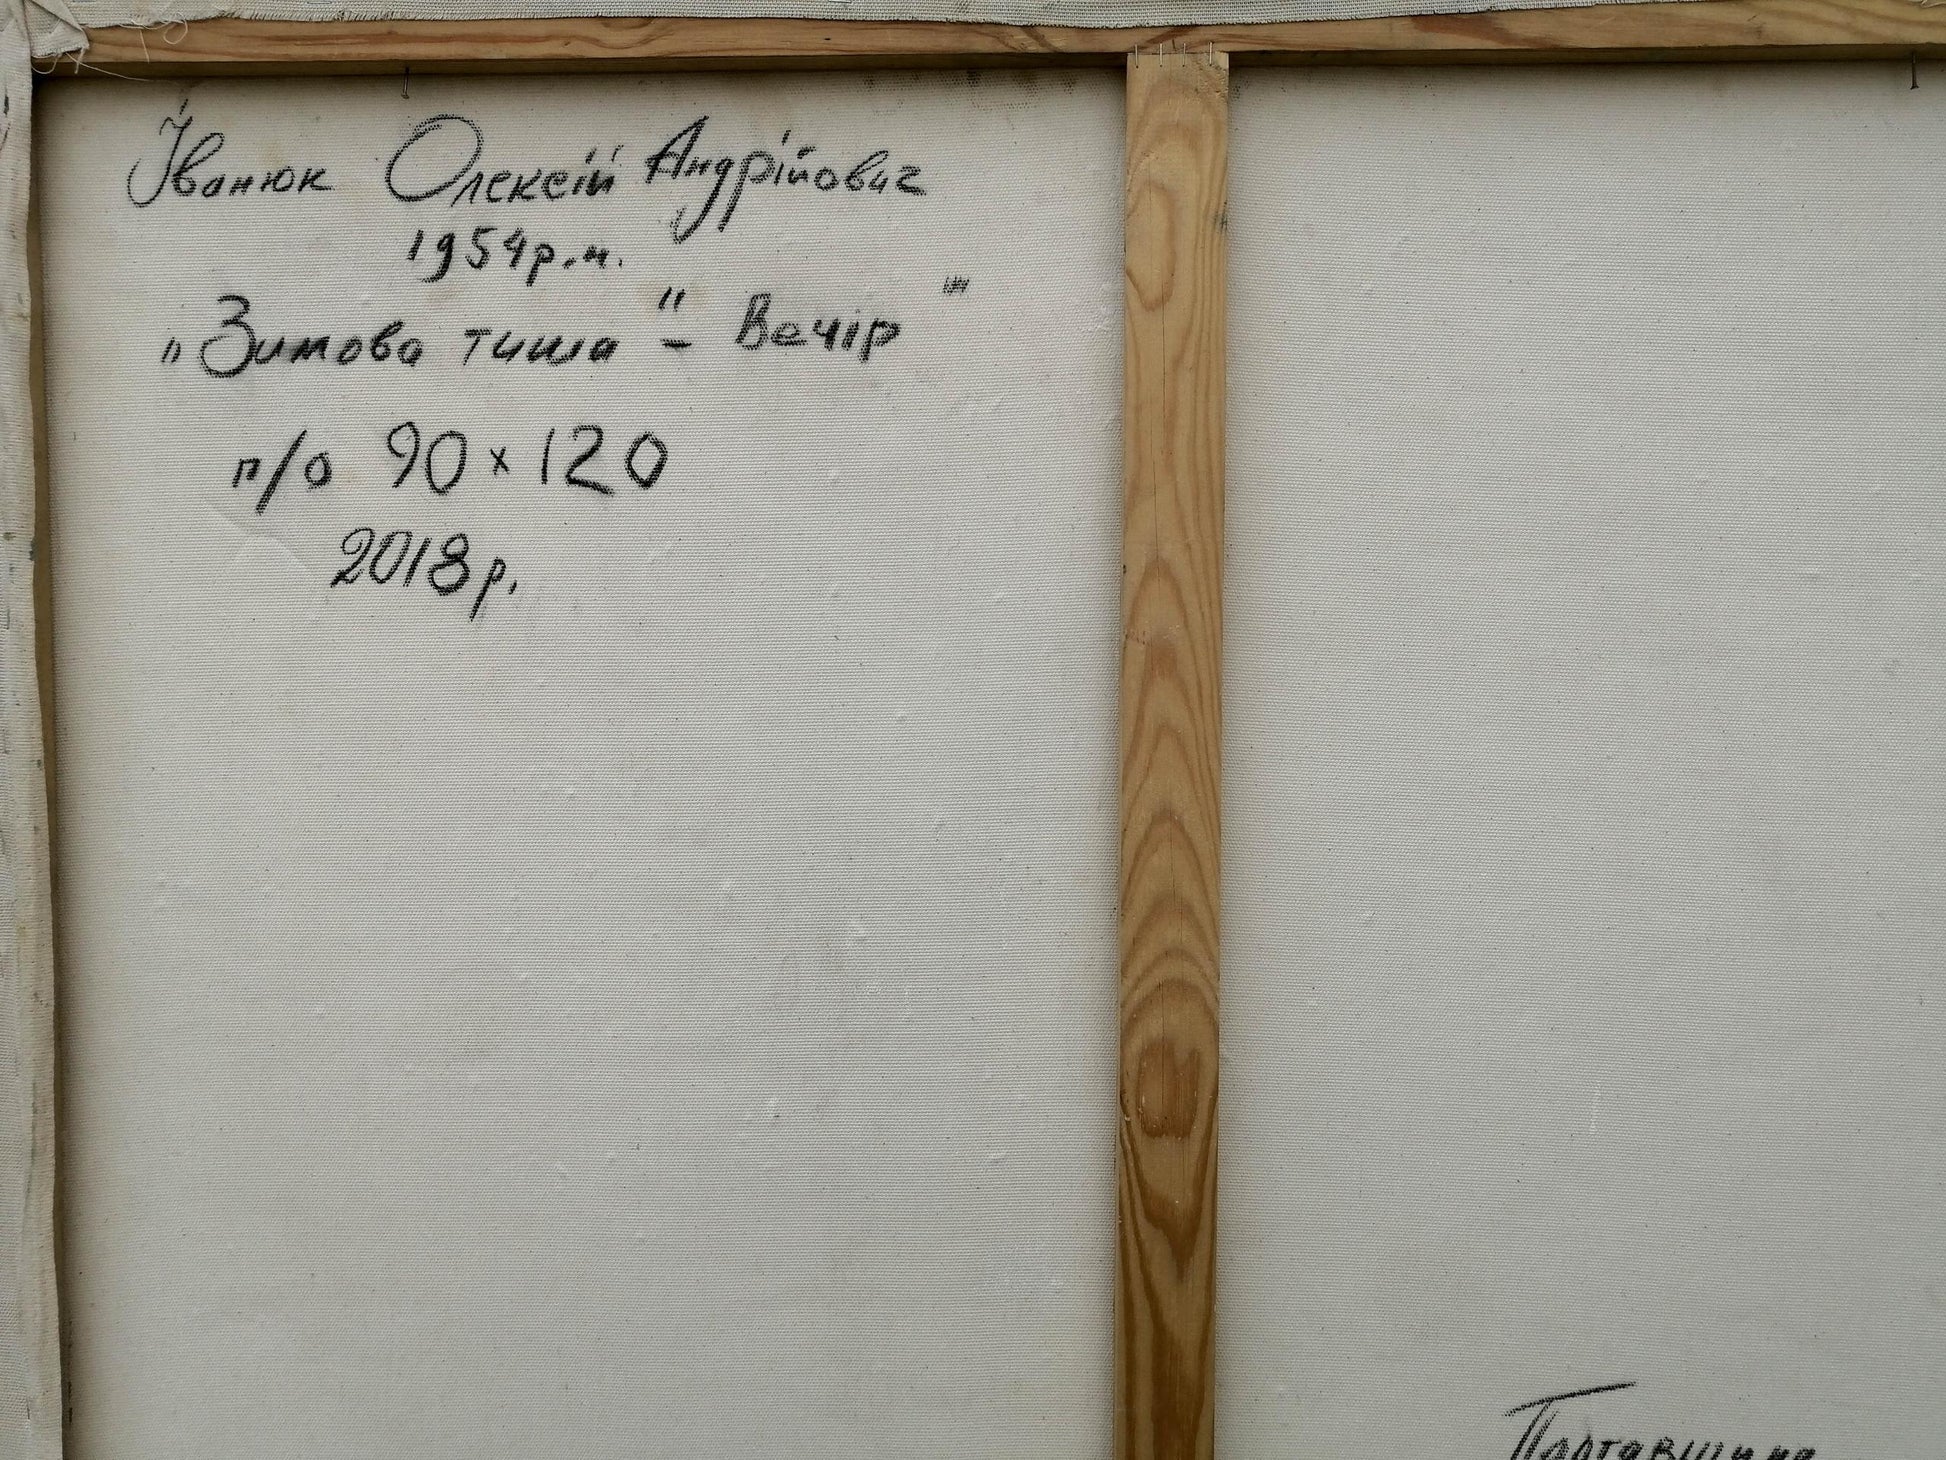 Іванюк Олексій Андрійович
1954р.н.
„Зимова тиша" - Вечір"
п/о 90 х 120
2018р.
Полтавщина